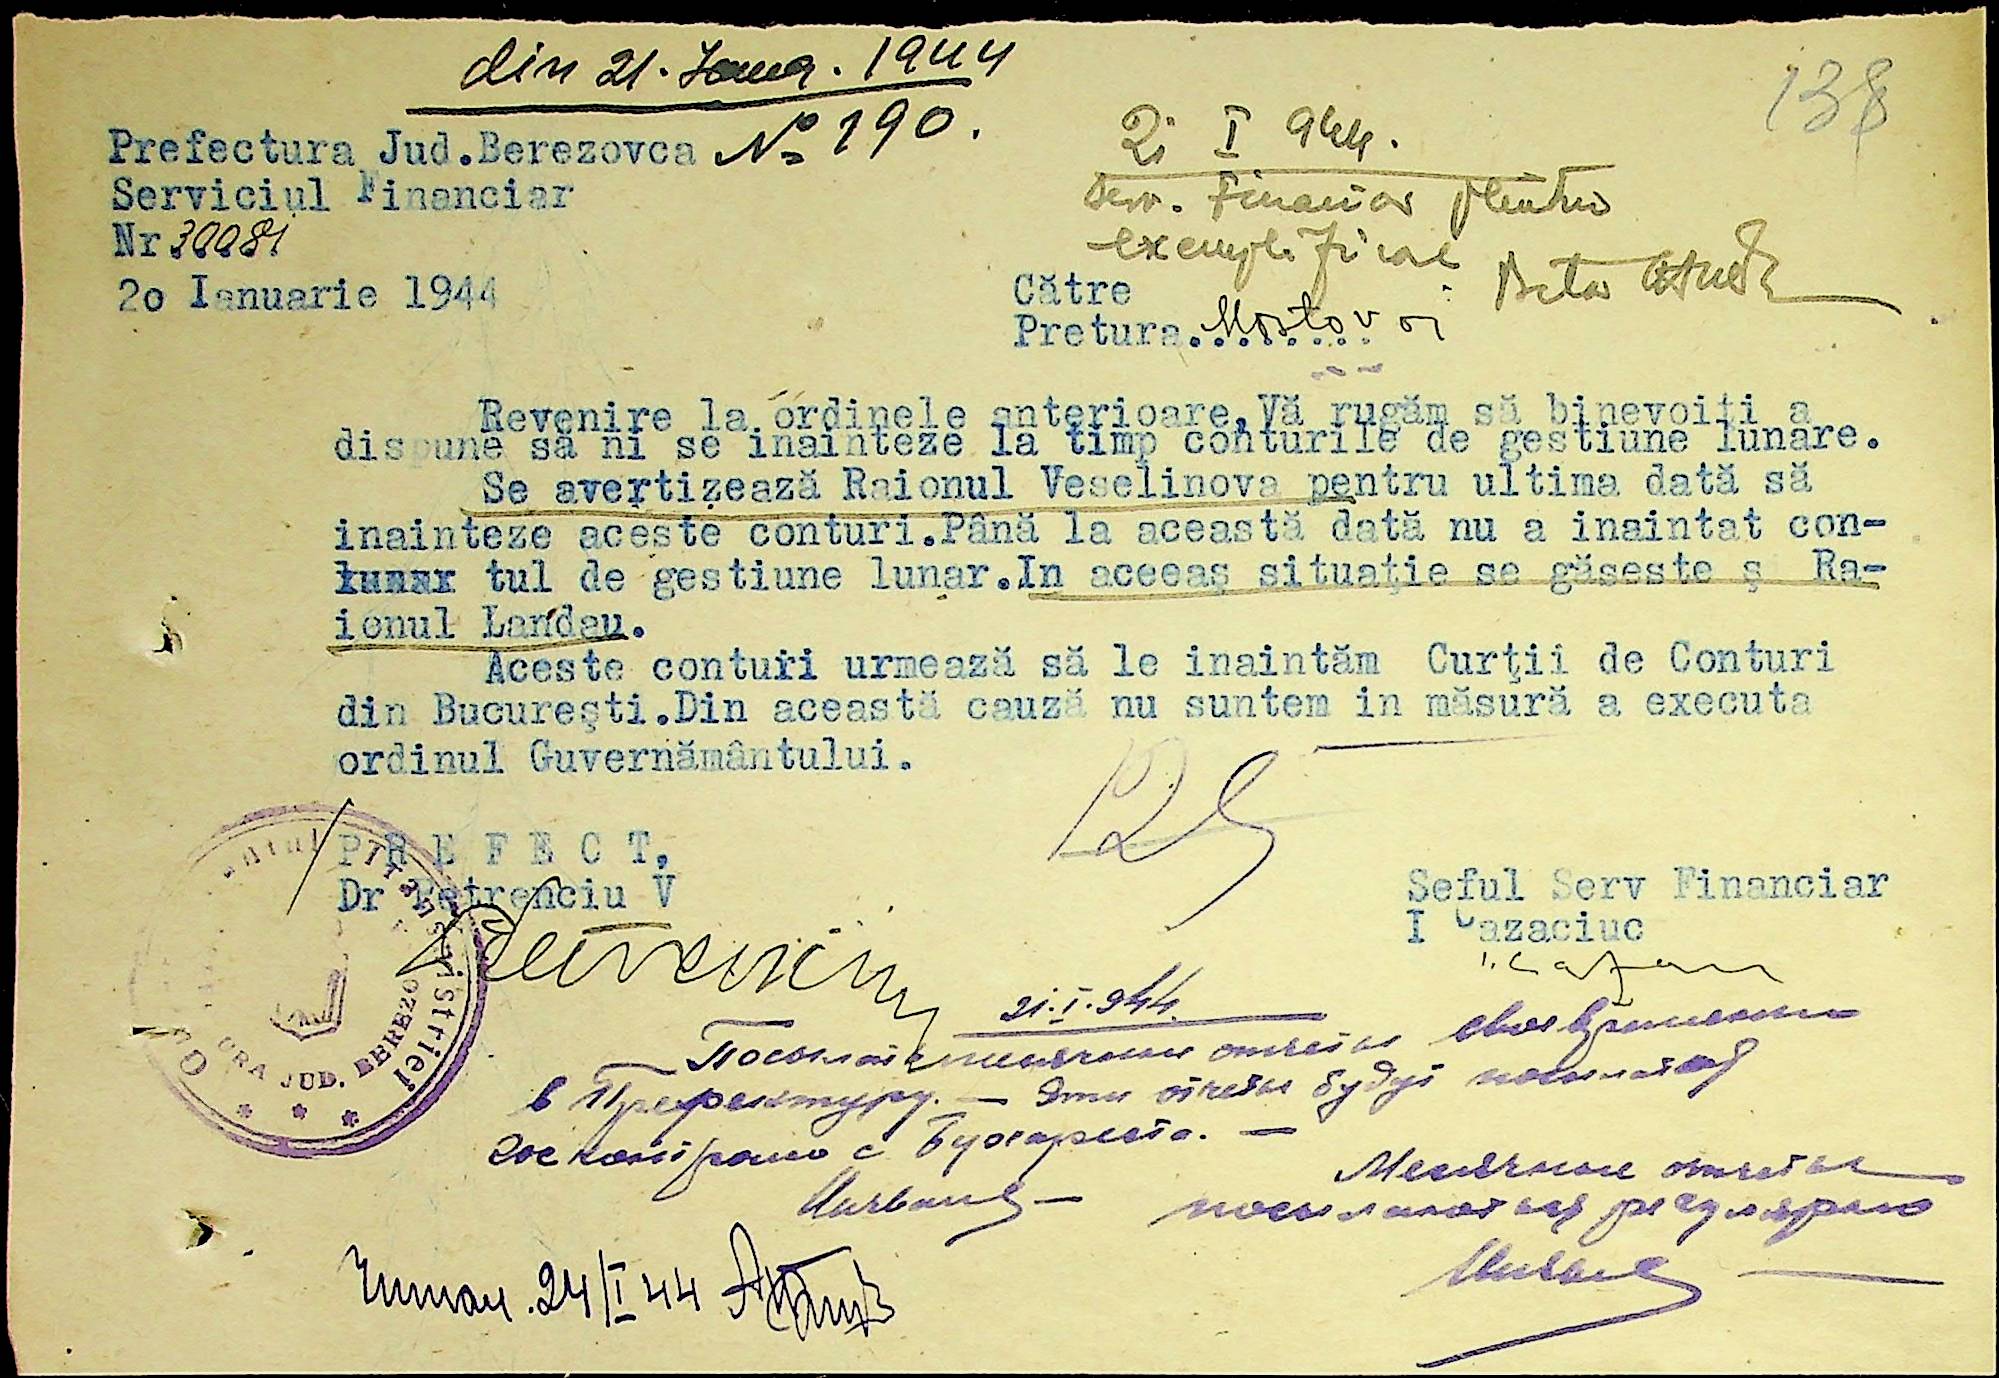 din 21. Ianua. 1944
№ 190.
138
Prefectura Jud.Berezovca
Serviciul Financiar
Nr 30081
2o Ianuarie 1944
21 I 944.
Serv. Financiar pentru
Către
Pretura Mostovoi
Revenire la ordinele anterioare,Vă rugăm să binevoiți a
dispune să ni se inainteze la timp conturile de gestiune lunare.
Se avertizează Raionul Veselinova pentru ultima dată să
inainteze aceste conturi.Până la această dată nu a inaintat con-
lunar tul de gestiune lunar.In aceeaș situație se găseste ș Ra-
ionul Landau.
Aceste conturi urmează să le inaintăm Curții de Conturi
din București.Din această cauză nu suntem in măsură a executa
ordinul Guvernământului.
P R E F E C T,
Dr Petrenciu V
Seful Serv Financiar
I Cazaciuc
Transnistriei
URA JUD. BEREZO
21.I.944.
Посылать месячные отчеты своевременно
в Префектуру. — Эти отчеты будут
с Бухареста. —
Месячные отчеты
посылаются регулярно
Читал. 24/I 44